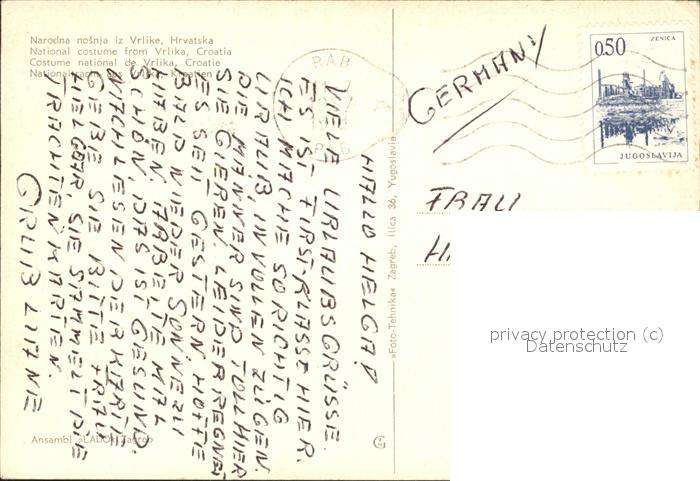 Narodna nošnja iz Vrlike, Hrvatska
National costume from Vrlika, Croatia
Costume national de Vrlika, Croatie
Ansambl »LADO« Zagreb
»Foto-Tehnika« Zagreb, Ilica 36, Yugoslavia
RAB
GERMANY
ZENICA
0.50
JUGOSLAVIJA
FRAU
HALLO HELGA!
VIELE URLAUBSGRÜSSE.
ES IST FIRST-KLASSE HIER.
ICH MACHE SO RICHTIG
URLAUB, IN VOLLEN ZÜGEN.
DIE MÄNNER SIND TOLL HIER
SIE GIEREN. LEIDER REGNET
ES SEIT GESTERN. HOFFE
BALD WIEDER SONNE ZU
HABEN. HABE JE MAL
SCHÖN, DAS IST GESUND.
NACHLIESEN DER KARTE
GEBE SIE BITTE FRAU
SIE SAMMELT DIE
TRACHTENKARTEN.
GRUß LIANE
privacy protection (c)
Datenschutz